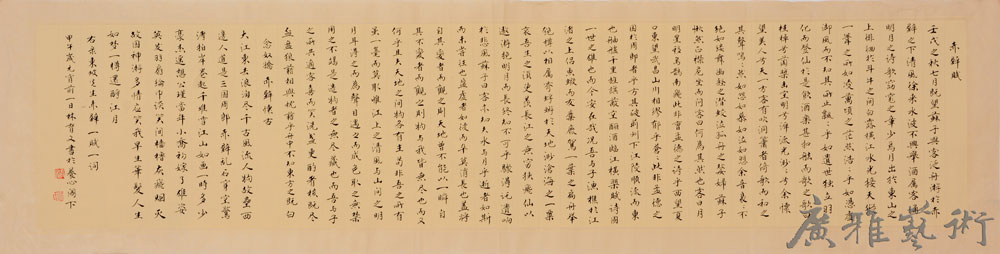 赤壁賦
壬戌之秋七月既望蘇子與客泛舟遊於赤
壁之下清風徐來水波不興舉酒屬客誦
明月之詩歌窈窕之章少焉月出於東山之
上徘徊於斗牛之間白露橫江水光接天縱
一葦之所如凌萬頃之茫然浩浩乎如憑虛
御風而不知其所止飄飄乎如遺世獨立羽
化而登仙於是飲酒樂甚扣舷而歌之歌曰
桂棹兮蘭槳擊空明兮泝流光渺渺兮余懷
望美人兮天一方客有吹洞簫者倚歌而和之
其聲嗚嗚然如怨如慕如泣如訴餘音裊裊不
絕如縷舞幽壑之潛蛟泣孤舟之嫠婦蘇子愀
然正襟危坐而問客曰何為其然也客曰月
明星稀烏鵲南飛此非曹孟德之詩乎西望夏
口東望武昌山川相繆鬱乎蒼蒼此非孟德之
困於周郎者乎方其破荊州下江陵順流而東
也舳艫千里旌旗蔽空釃酒臨江橫槊賦詩固
一世之雄也而今安在哉況吾與子漁樵於江
渚之上侶魚蝦而友麋鹿駕一葉之扁舟舉
匏樽以相屬寄蜉蝣於天地渺滄海之一粟
哀吾生之須臾羨長江之無窮挾飛仙以
遨遊抱明月而長終知不可乎驟得託遺響
於悲風蘇子曰客亦知夫水與月乎逝者如斯
而未嘗往也盈虛者如彼而卒莫消長也蓋將
自其變者而觀之則天地曾不能以一瞬自
其不變者而觀之則物與我皆無盡也而又
何羨乎且夫天地之間物各有主苟非吾之所有
雖一毫而莫取惟江上之清風與山間之明
月耳得之而為聲目遇之而成色取之無禁
用之不竭是造物者之無盡藏也而吾與子
之所共適客喜而笑洗盞更酌肴核既盡
杯盤狼藉相與枕藉乎舟中不知東方之既白
念奴嬌 赤壁懷古
大江東去浪淘盡千古風流人物故壘西
邊人道是三國周郎赤壁亂石穿空驚
濤拍岸卷起千堆雪江山如畫一時多少
豪傑遙想公瑾當年小喬初嫁了雄姿
英發羽扇綸巾談笑間檣櫓灰飛烟滅
故國神游多情應笑我早生華髮人生
如夢一樽還酹江月
右录東坡先生赤壁一賦一词
甲午歲元宵前一日林育文書於養心齋下
廣雅藝術